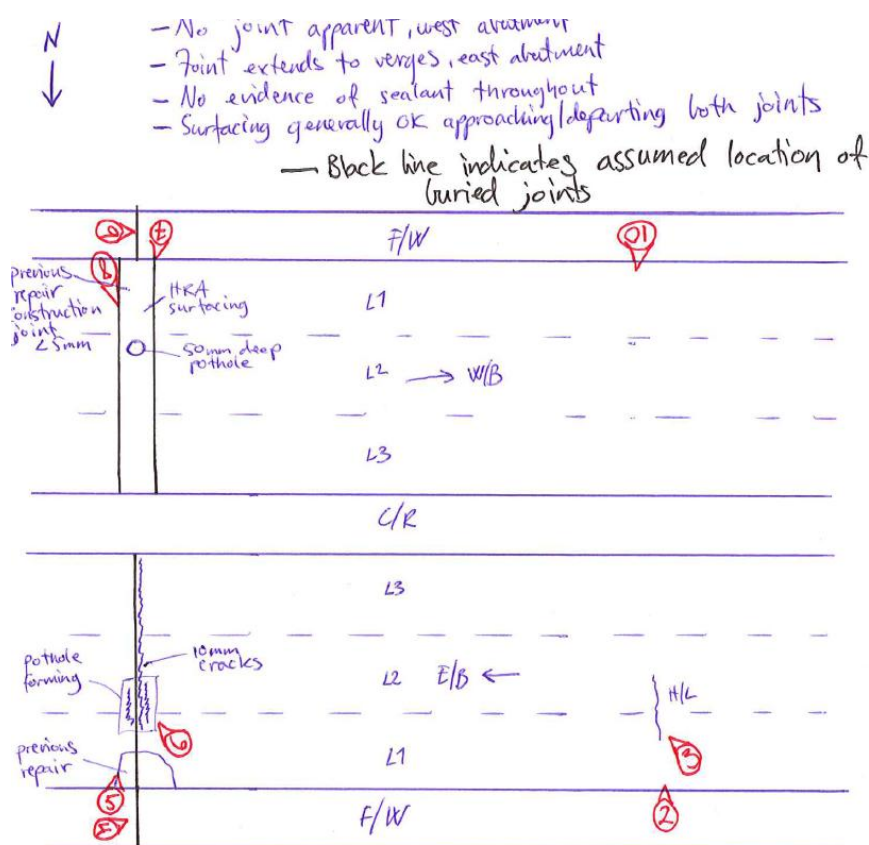 N
- No joint apparent, west abutment
- Joint extends to verges, east abutment
- No evidence of sealant throughout
- Surfacing generally OK approaching/departing both joints
— Black line indicates assumed location of
buried joints
F/W
10
7
8
previous
repair
construction
joint
<5mm
HRA
surfacing
L1
50mm deep
pothole
L2 → W/B
L3
C/R
L3
10mm
cracks
pothole
forming
L2 E/B ←
H/L
6
3
previous
repair
L1
5
2
F/W